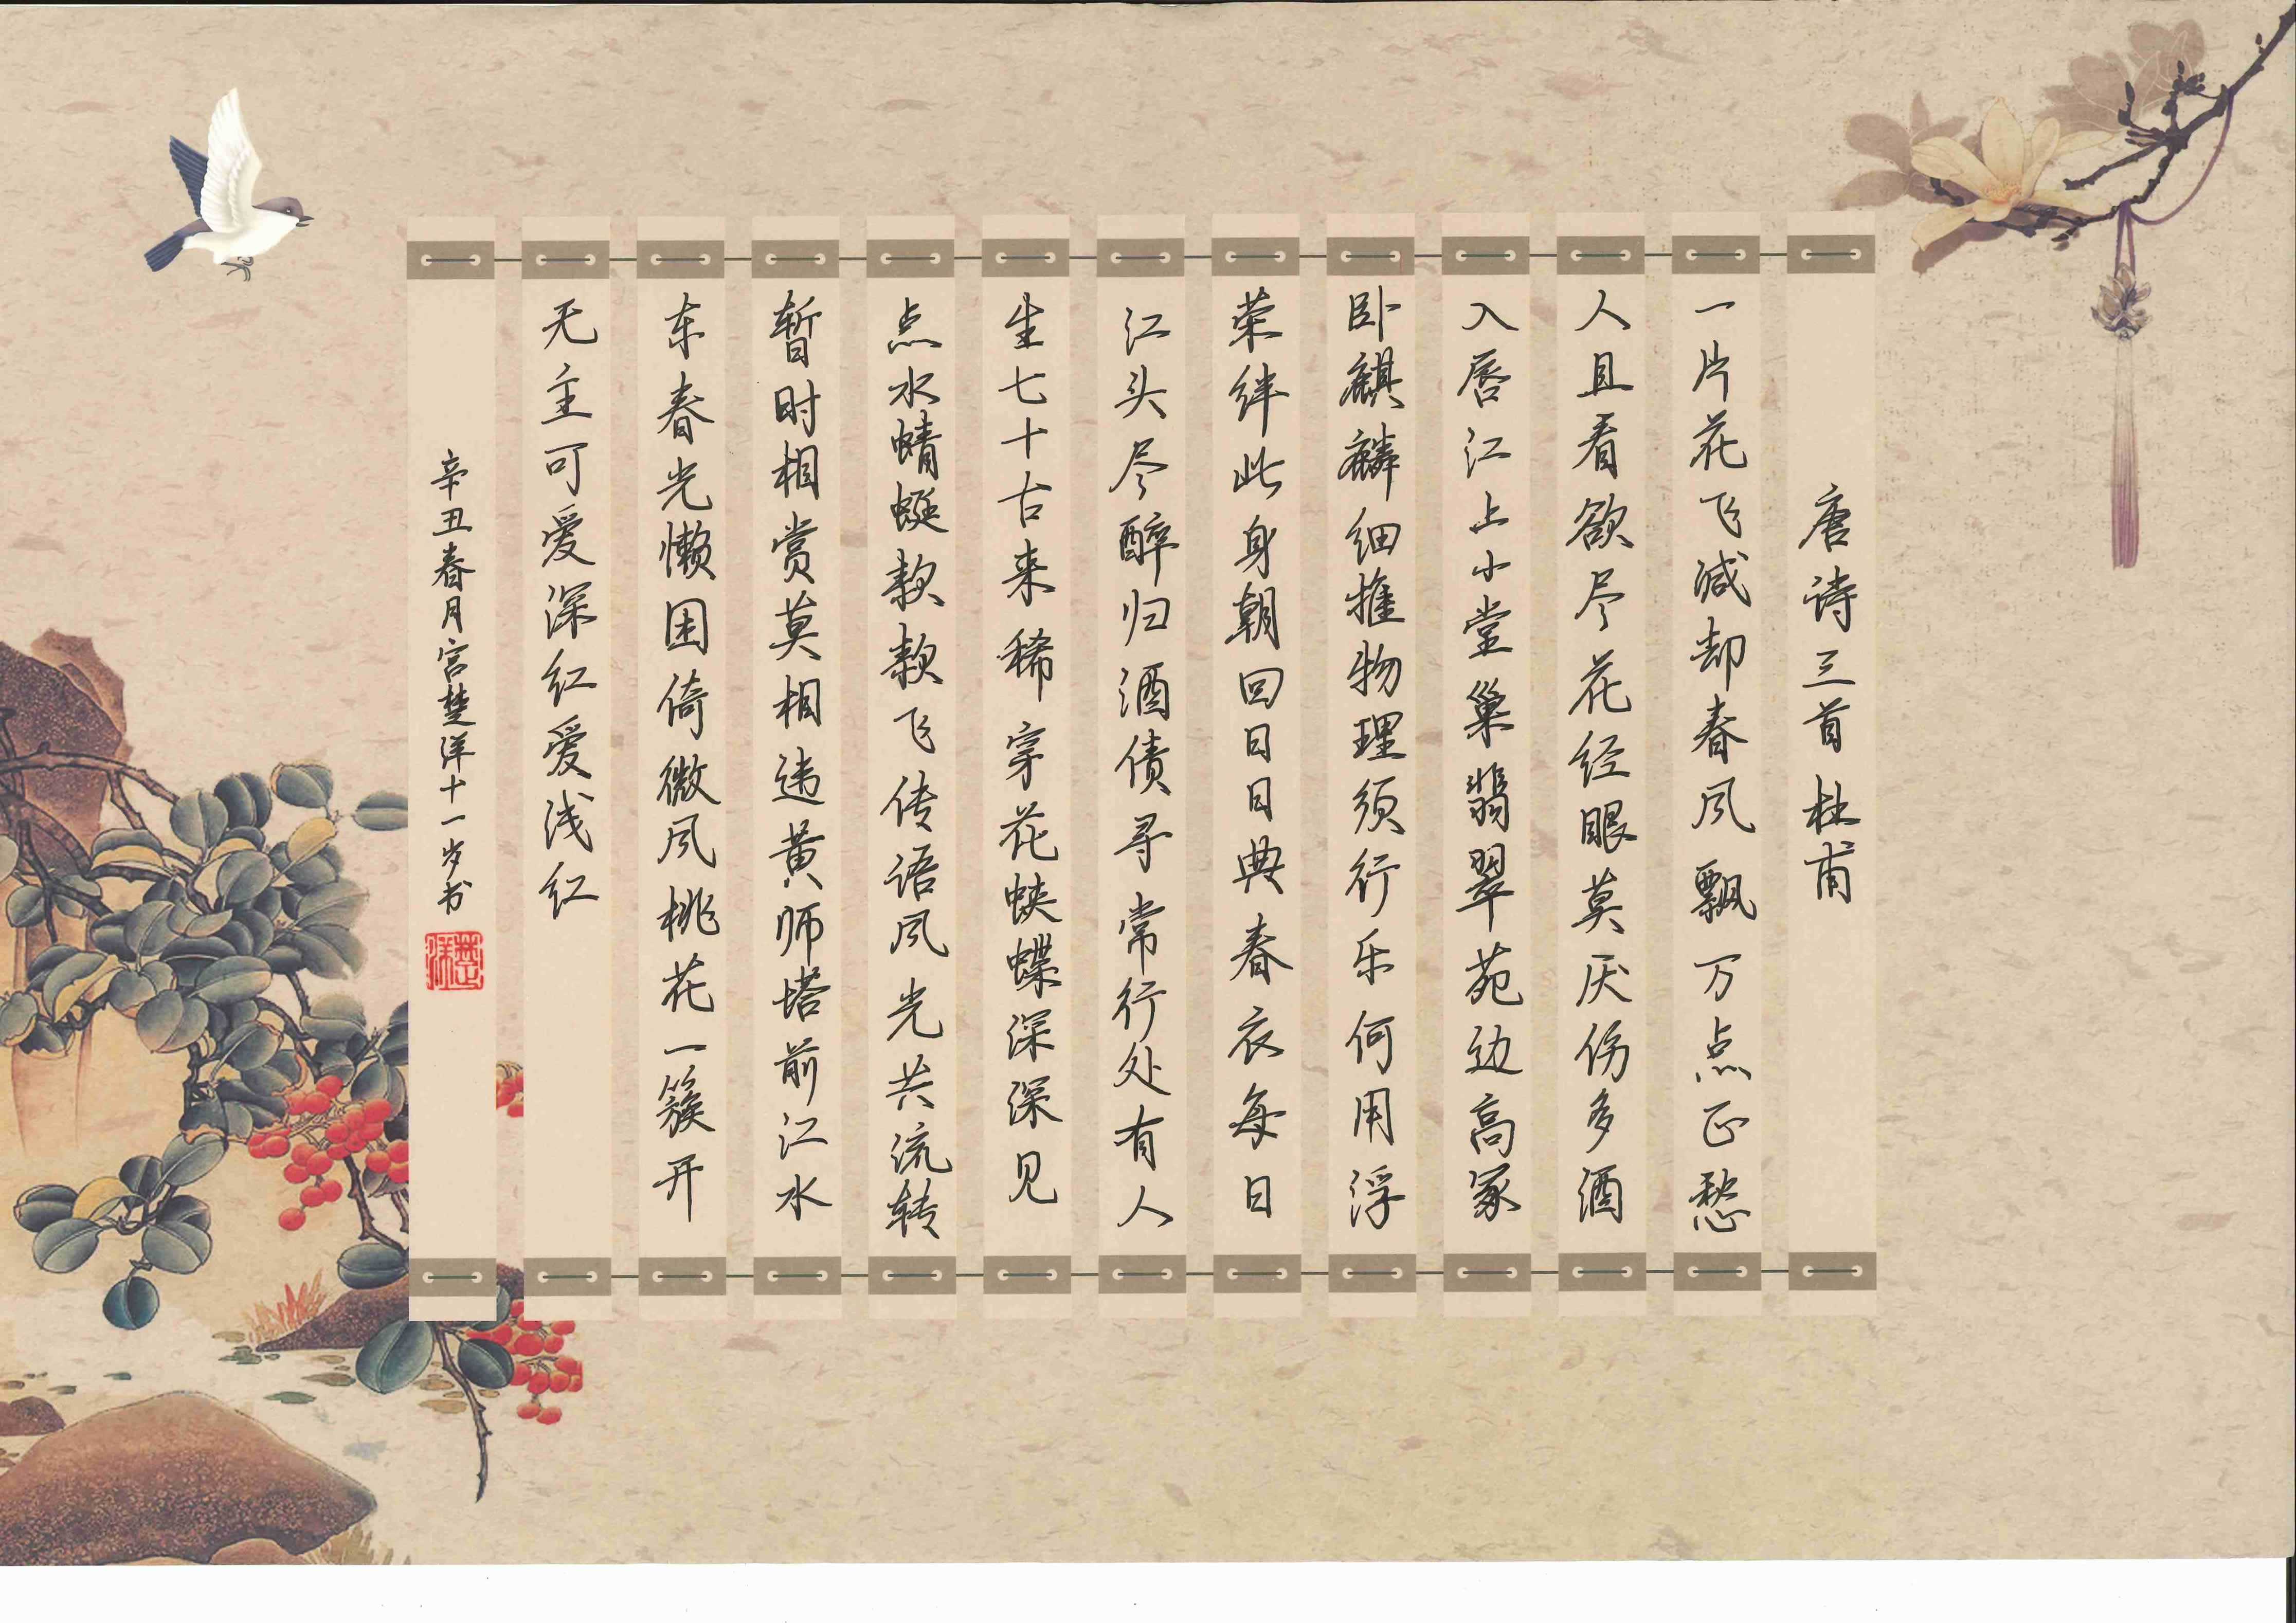 唐诗三首杜甫
一片花飞减却春风飘万点正愁
人且看欲尽花经眼莫厌伤多酒
入唇江上小堂巢翡翠苑边高冢
卧麒麟细推物理须行乐何用浮
荣绊此身朝回日日典春衣每日
江头尽醉归酒债寻常行处有人
生七十古来稀穿花蛱蝶深深见
点水蜻蜓款款飞传语风光共流转
暂时相赏莫相违黄师塔前江水
东春光懒困倚微风桃花一簇开
无主可爱深红爱浅红
辛丑春月宫楚洋十一岁书
楚洋